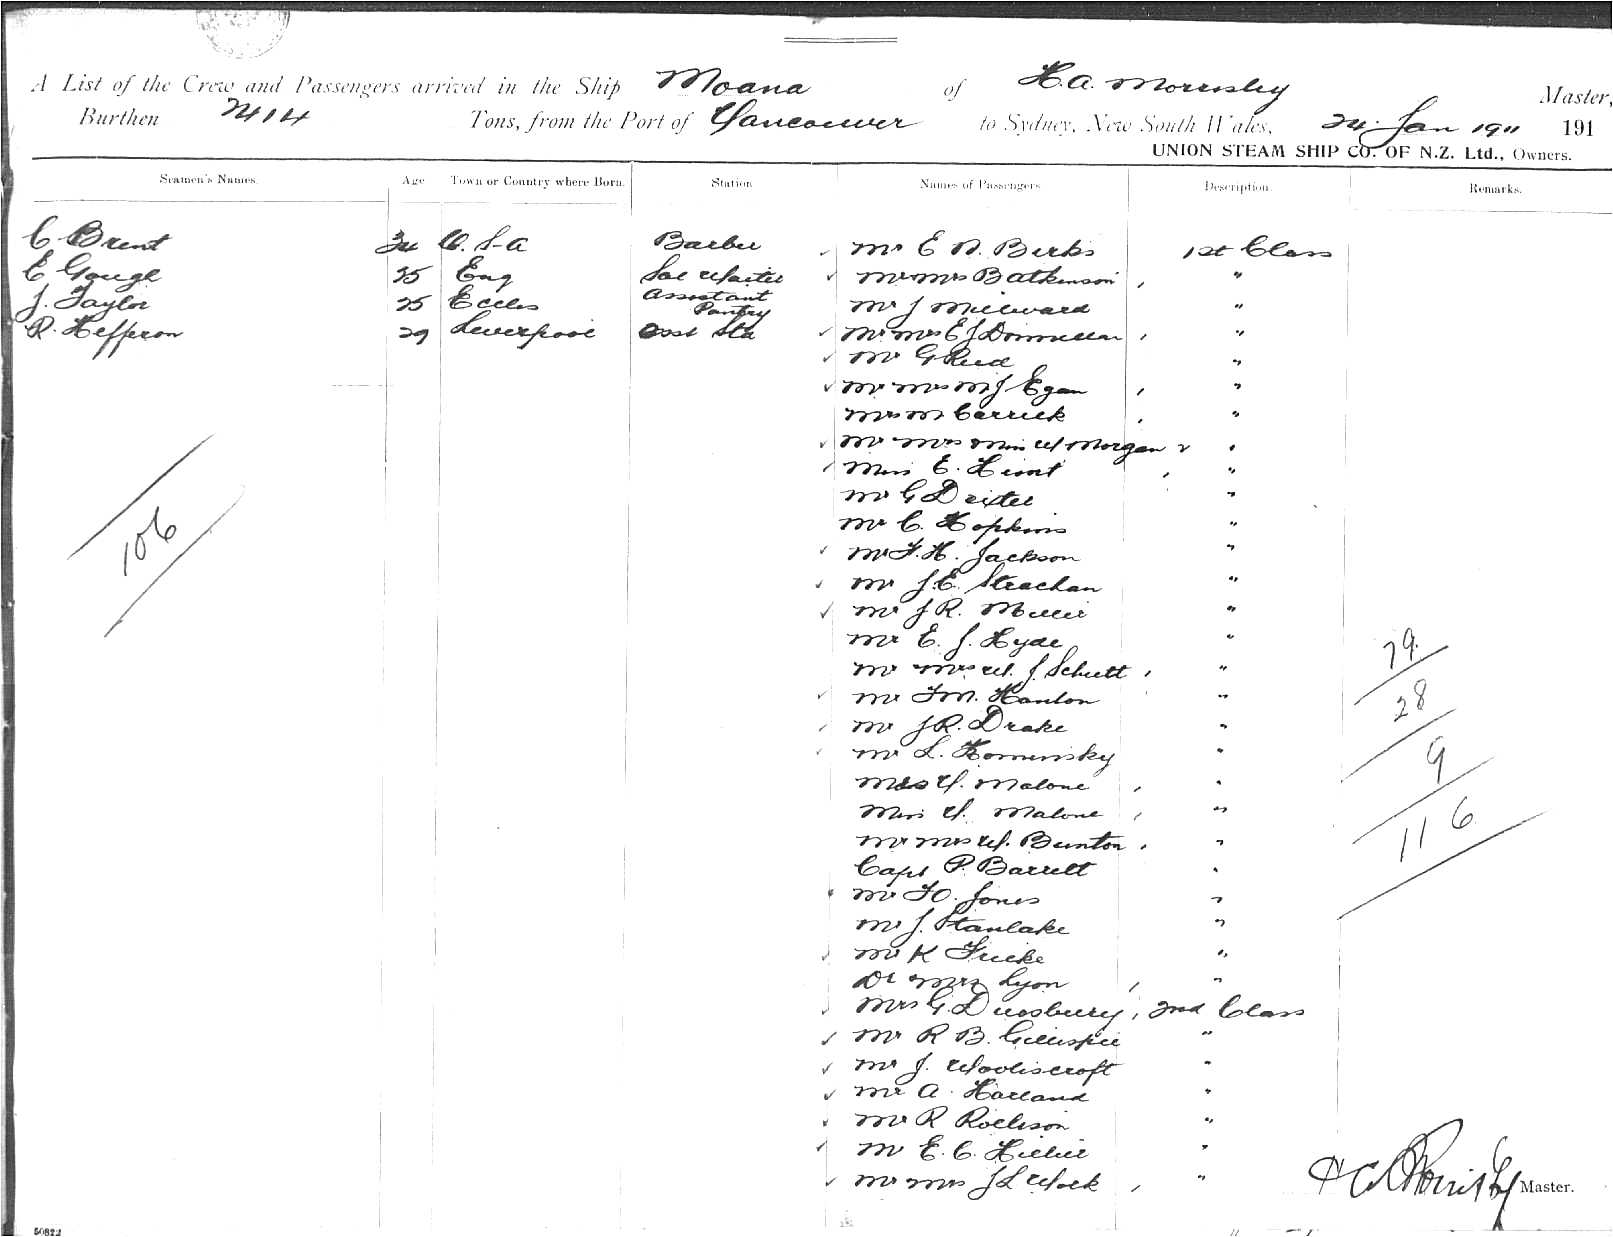 A List of the Crew and Passengers arrived in the Ship Moana of H.A. Morrisby Master,
Burthen 2414 Tons, from the Port of Vancouver to Sydney, New South Wales, 24 Jan 1911 191
UNION STEAM SHIP CO. OF N.Z. Ltd., Owners.
Seamen's Names. Age Town or Country where Born. Station Names of Passengers Description. Remarks.
C Brent 34 U.S.A Barber Mr E Birks 1st Class
E Gouge 25 Eng Sal Waiter Mr Mrs B Atkinson "
J. Taylor 25 Eccles Assistant Pantry Mr J Millward "
R. Hefferon 29 Liverpool Mr Mrs E J "
Mr G Reed "
Mr Mrs M J Egan "
Mrs M Carrick "
Mr Mrs Miss W Morgan "
Miss E. "
Mr G "
Mr C. Hopkins "
Mr F. H. Jackson "
Mr J. E. Strachan "
Mr J R. Miller "
Mr E. J. Hyde "
Mr Mrs W. J. Schutt "
Mr F M. Hanlon "
Mr J R. Drake "
Mr L. Kominsky "
Malone "
Miss Malone "
Mr Mrs W. Bunton "
Capt P. Barrett "
Mr Jones "
Mr J. Stanlake "
Mr K Fricke "
Dr Mrs Lyon "
Mrs G. Duesbury 2nd Class
Mr R B. Gillispie "
Mr J. Wooliscroft "
Mr A. Harland "
Mr R Rollison "
Mr E. C. Hillier "
Mr Mrs J L "
106
79
28
9
116
H A Morrisby Master.
50822